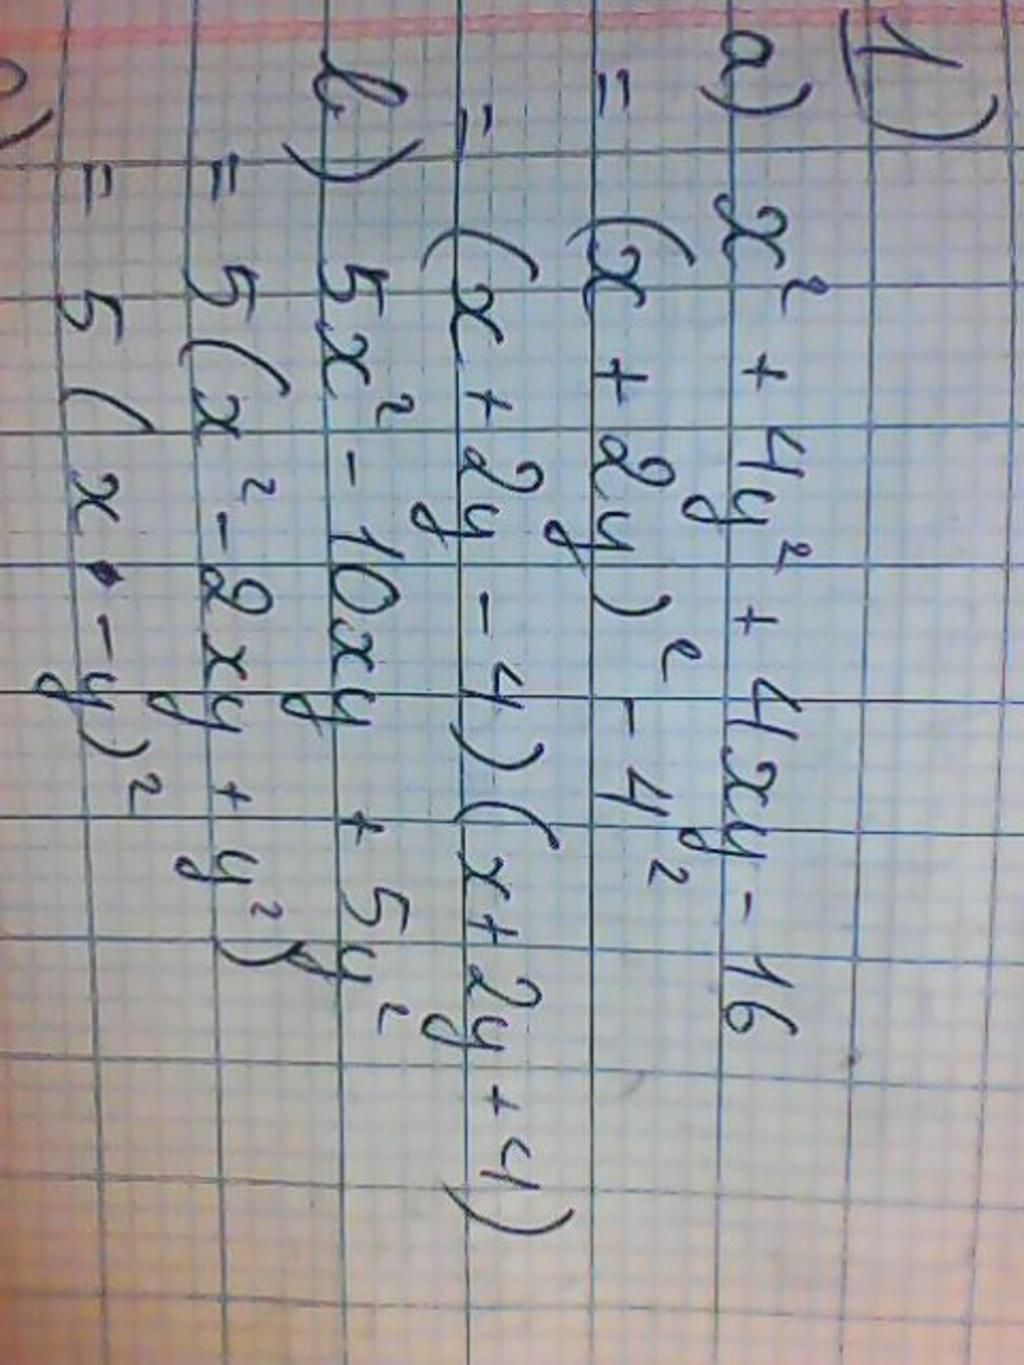 1)
a) x² + 4y² + 4xy - 16
= (x + 2y)² - 4²
= (x + 2y - 4)(x + 2y + 4)
b) 5x² - 10xy + 5y²
= 5(x² - 2xy + y²)
= 5(x - y)²